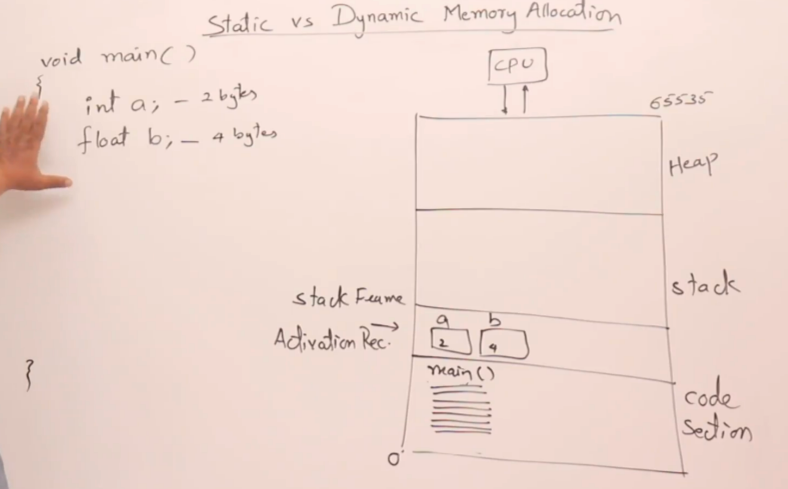 Static vs Dynamic Memory Allocation
void main()
{
int a; - 2 bytes
float b; - 4 bytes
}
CPU
65535
Heap
stack
stack Frame
Activation Rec. →
a b
2 4
main()
code
Section
0